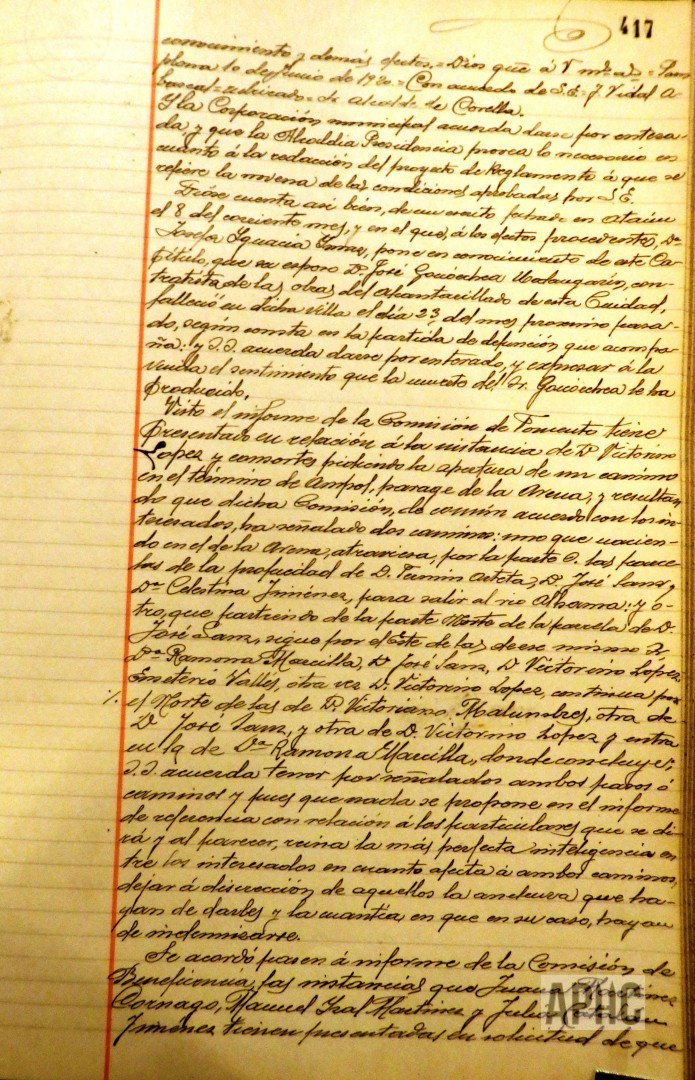 417
conocimiento y demás efectos. = Dios que á V. ms. as. = Pam
plona 10 de Junio de 1920. = Con acuerdo de S.E. = J. Vidal A-
barca = rubricado = Sr. Alcalde de Corella.
Y la Corporación municipal acuerda darse por entera-
da, y que la Alcaldia Presidencia provea lo necesario en
cuanto á la redacción del proyecto de Reglamento á que se
refiere la novena de las condiciones aprobadas por S.E.
Dióse cuenta asi bién, de un escrito fechado en Ataún
el 8 del corriente mes, y en el que, á los efectos procedentes, Dª
Josefa Ignacia pone en conocimiento de este Ca-
pitulo, que su esposo D. José Goicoechea con-
tratista de las obras del alcantarillado de esta Ciudad,
falleció en dicha villa el dia 23 del mes proximo pasa-
do, segun consta en la partida de defunción que acompa-
ña: y S.S. acuerda darse por enterado, y expresar á la
viuda el sentimiento que la muerte del Sr. Goicoechea le ha
producido.
Visto el informe de la Comisión de Fomento tiene
presentado en relación á la instancia de D. Victorino
Lopez y consortes pidiendo la apertura de un camino
en el término de Ampol, parage de la Arena; y resultan
do que dicha Comisión, de común acuerdo con los in-
teresados, ha señalado dos caminos: uno que nacien-
do en el de la Arena, atraviesa, por la parte O. las parce-
las de la propiedad de D. Fermin Arteta, D. José Sanz y
Dª Celestina Jiménez, para salir al rio Alhama: y o-
tro, que partiendo de la parte Norte de la parcela de D.
José Sanz, sigue por el Este de las de ese mismo Sr.
Dª Ramona Marcilla, D. José Sanz, D. Victorino López,
Emeterio Vallés, otra vez D. Victorino Lopez, continua por
el Norte de las de D. Victoriano Malumbres, otra de
D. José Sanz, y otra de D. Victorino Lopez y entra
en la de Dª Ramona Marcilla, donde concluye;
S.S. acuerda tener por señalados ambos pasos ó
caminos y pues que nada se propone en el informe
de referencia con relación á los particulares que se di-
rá y al parecer, reina la más perfecta inteligencia en
tre los interesados en cuanto afecta á ambos caminos,
dejar á discrección de aquellos la anchura que ha-
yan de darles y la cuantia en que en su caso, hayan
de indemnizarse.
Se acordó pasen á informe de la Comisión de
Beneficencia, las instancias que Juan
Cornago, Manuel Martinez y
Jimenez tienen presentadas en solicitud de que
APHC